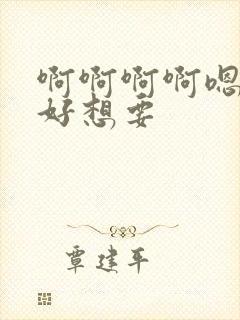 啊啊啊啊嗯
好想要
覃建平